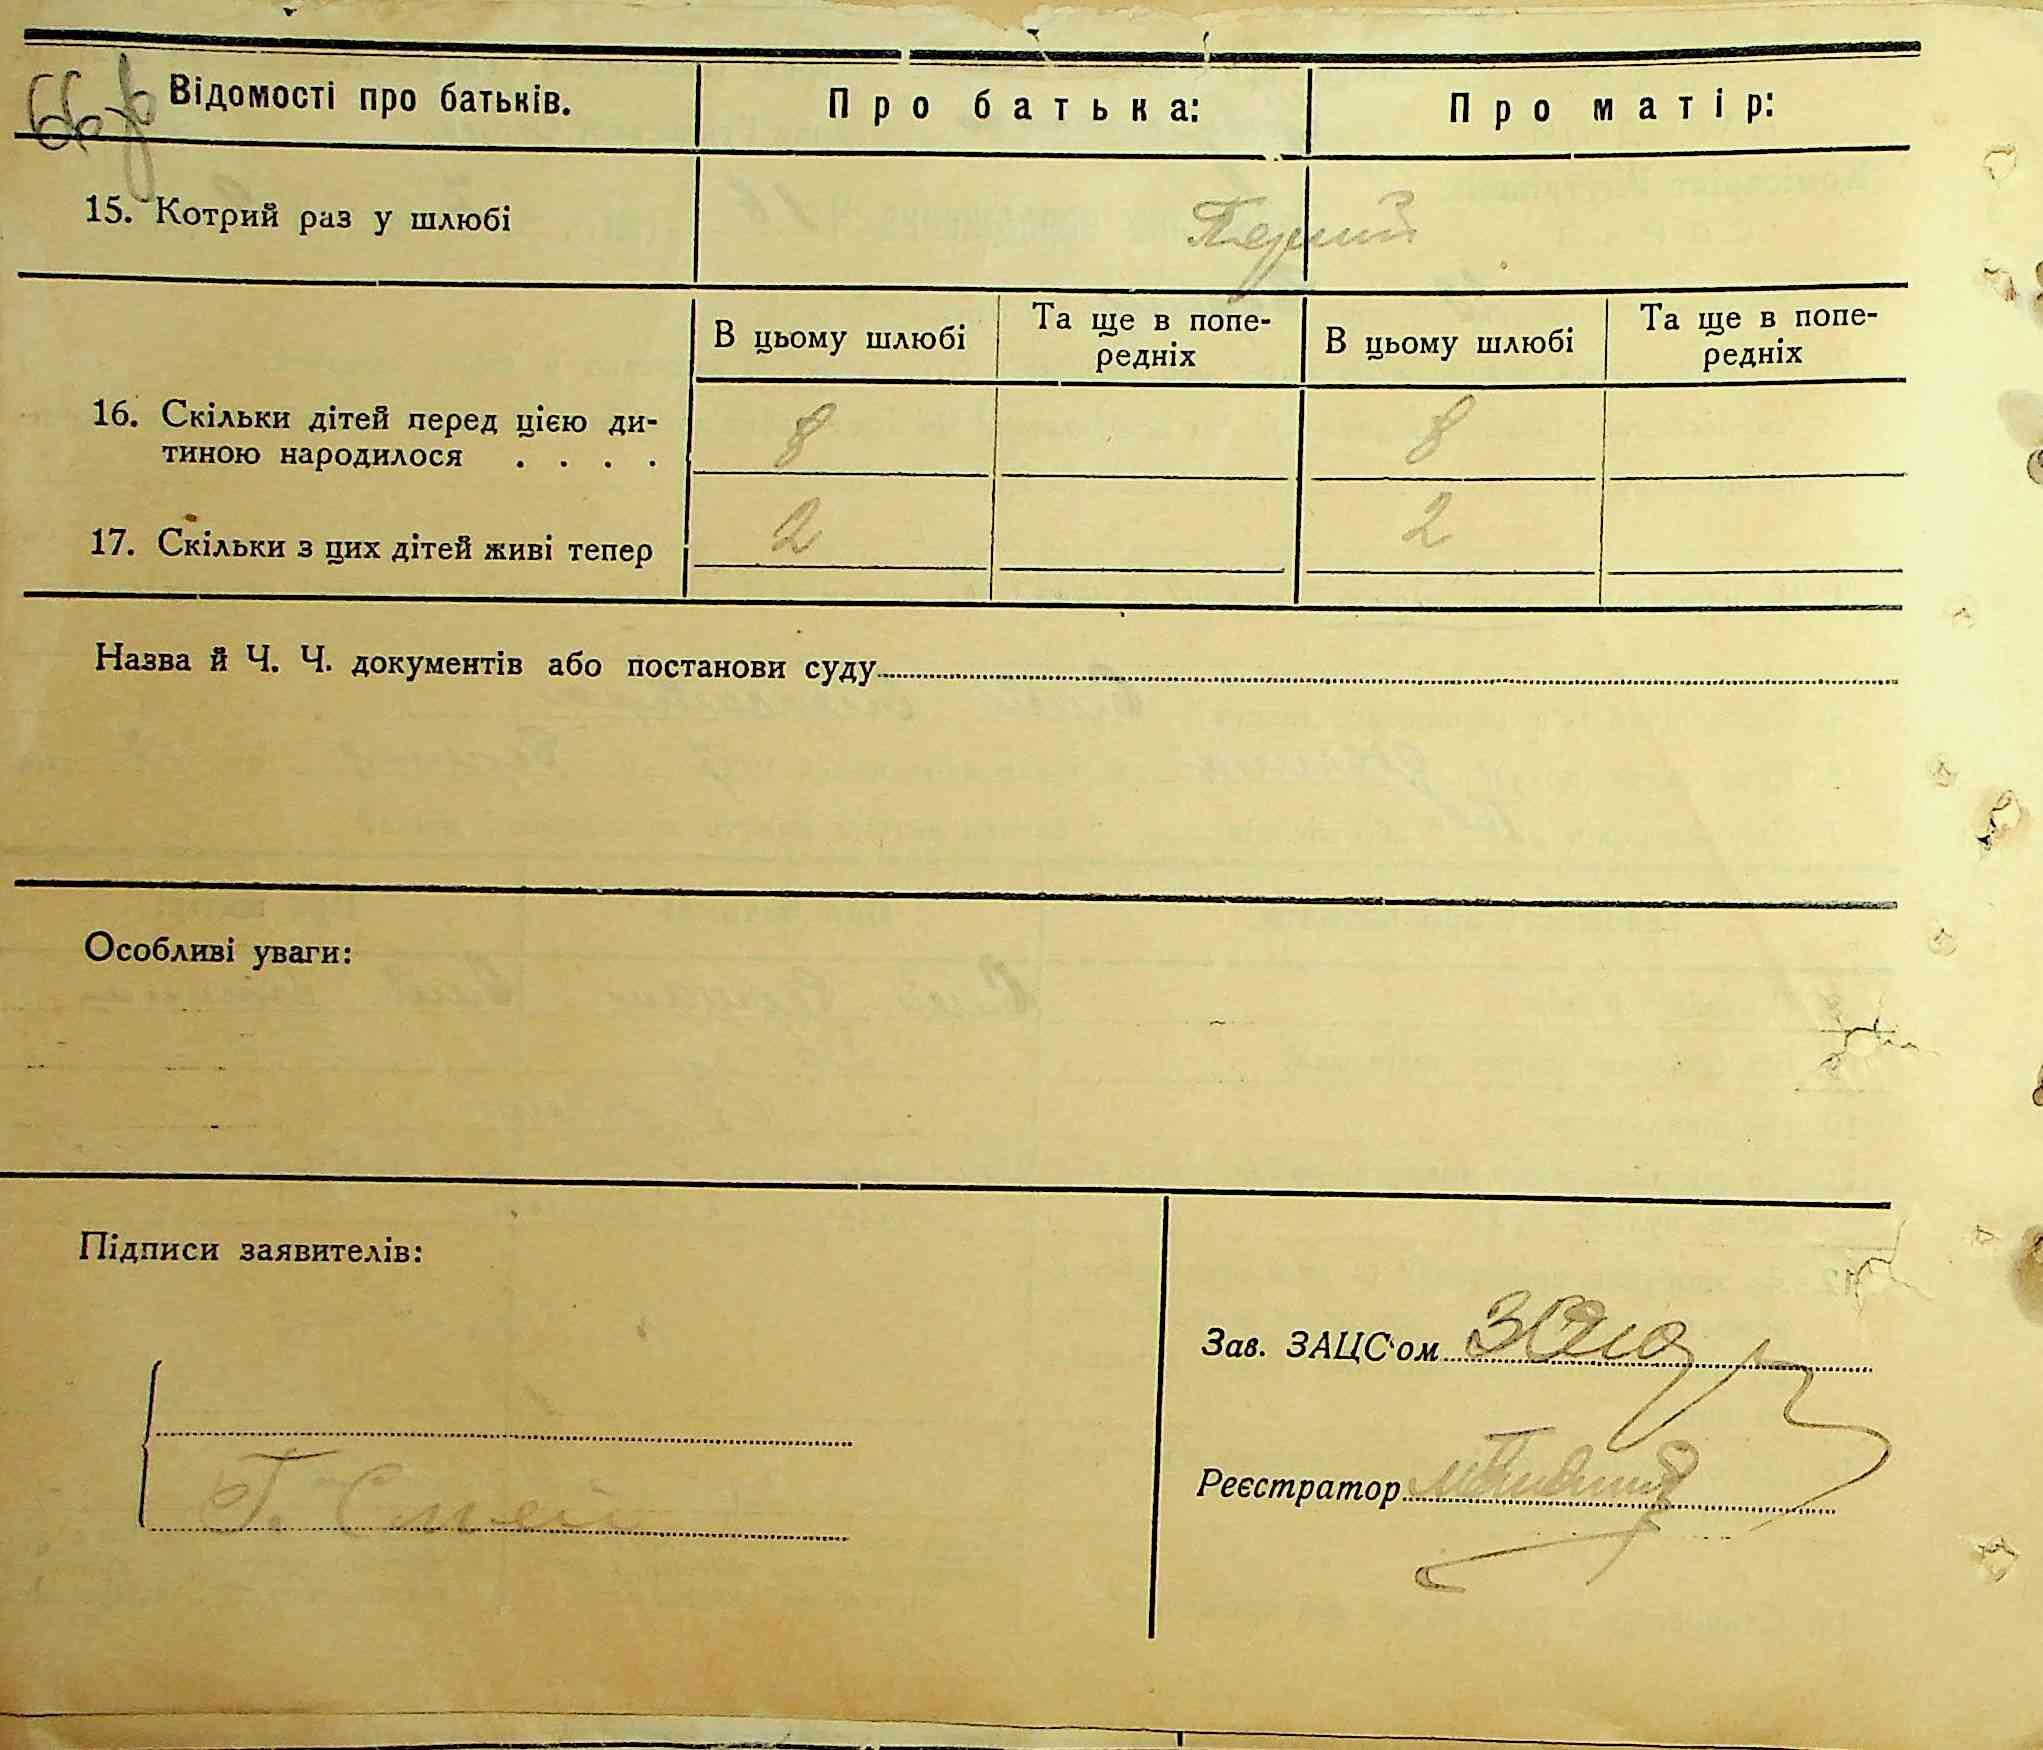 Відомості про батьків.
Про батька:
Про матір:
15. Котрий раз у шлюбі
Перший
В цьому шлюбі
Та ще в попе-
редніх
В цьому шлюбі
Та ще в попе-
редніх
16. Скільки дітей перед цією ди-
тиною народилося . . . .
8
8
17. Скільки з цих дітей живі тепер
2
2
Назва й Ч. Ч. документів або постанови суду
Особливі уваги:
Підписи заявителів:
Г. Смей
Зав. ЗАЦС'ом
Реєстратор